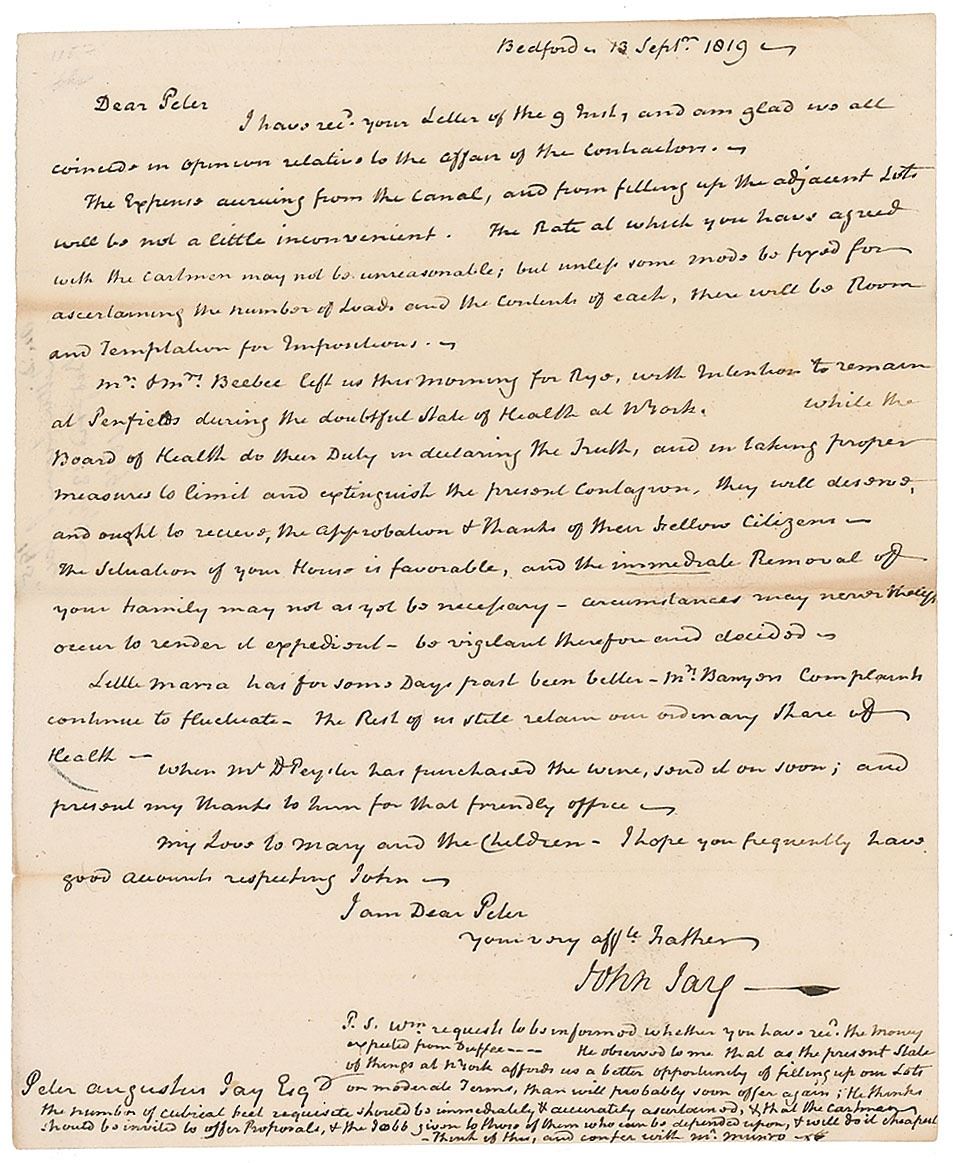 Bedford 13 Sepr. 1819
Dear Peter
I have recd. your Letter of the 9 Inst, and am glad we all
coincide in opinion relative to the affair of the Contractors. —
The Expense accruing from the Canal, and from filling up the adjacent Lots
will be not a little inconvenient. The Rate at which you have agreed
with the cartmen may not be unreasonable; but unless some mode be fixed for
ascertaining the number of Loads and the Contents of each, there will be Room
and Temptation for Impositions. —
Mr. & Mrs. Beebee left us this morning for Rye, with Intention to remain
at Penfields during the doubtful State of Health at NYork. while the
Board of Health do their Duty in declaring the Truth, and in taking proper
measures to limit and extinguish the present Contagion, they will deserve,
and ought to recieve, the approbation & thanks of their Fellow Citizens —
The Situation of your House is favorable, and the immediate Removal of
your Family may not as yet be necessary – circumstances may nevertheless
occur to render it expedient – be vigilant therefore and decided —
Little Maria has for some Days past been better – Mrs. Banyers Complaints
continue to fluctuate – The Rest of us still retain our ordinary Share of
Health —
when Mr DPeyster has purchased the wine, send it on soon; and
present my thanks to him for that friendly office —
My Love to Mary and the Children – I hope you frequently have
good accounts respecting John —
I am Dear Peter
Your very affte Father
John Jay
P.S. Wm. requests to be informed whether you have recd. the money
expected from Duffee — — He observed to me that as the present State
of things at NYork affords us a better opportunity of filling up our Lots
on moderate Terms, than will probably soon offer again; He thinks
Peter Augustus Jay Esqr
the number of cubical feet requisite should be immediately & accurately ascertained, & that the Cartmen
should be invited to offer Proposals, & the Jobb given to those of them who can be depended upon, & will do it cheapest
– Think of this, and confer with Mr. Munro —